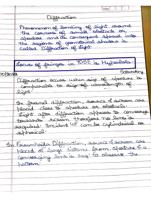 Diffraction
Phenomenon of bending of light around
the corners of small obstacle or
aperture and its consequent spread into
the regions of geometrical shadow is
called Diffraction of light
Locus of fringes in YDSE is Hyperbola
Saturday
Diffraction occurs when size of obstacle is
comparable to size of wavelength of
light
In Fresnel Diffraction, source & screen are
placed close to obstacle or aperture.
Light after diffraction appears to converge
towards screen. Therefore no lens is
required. Incident can be cylindrical or
spherical
In Fraunhofer Diffraction, source & screen are
placed at large distance from obstacle
converging lens is used to observe the
pattern